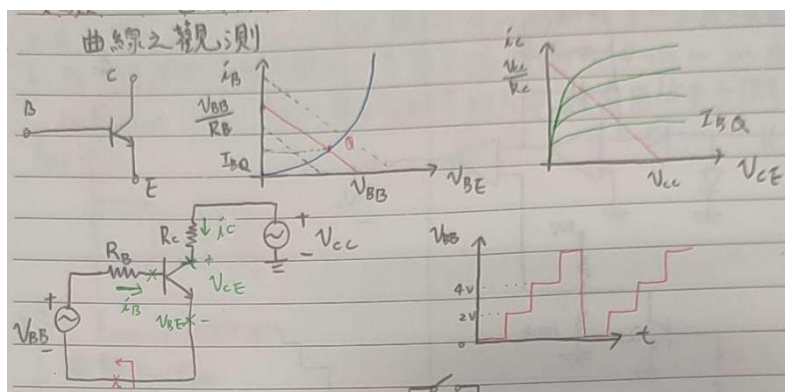 曲線之觀測
C
B
E
iB
VBB
RB
IBQ
Q
VBB
VBE
iC
VCC
RC
IBQ
VCC
VCE
RC
iC
+
VCC
-
RB
iB
+
VCE
VBE
-
+
VBB
-
VBB
4V
2V
0
t